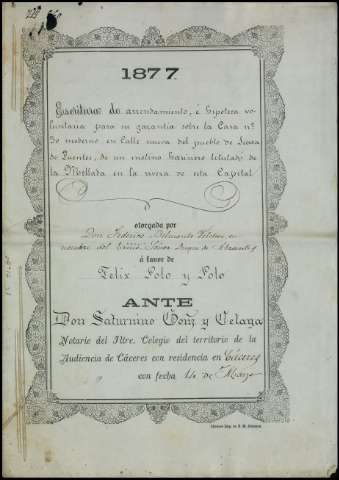 1877
Escritura de arrendamiento, é hipoteca vo-
luntaria para su garantia sobre la Casa nº
30 moderno en Calle nueva del pueblo de Sierra
de Fuentes, de un molino harinero titulado de
la Mellada en la rivera de esta Capital
otorgada por
Don Federico Belmonte Vilches, en
nombre del Excmo Señor Duque de Abrantes
á favor de
Felix Polo y Polo
ANTE
Don Saturnino Gonz. y Celaya
Notario del Iltre. Colegio del territorio de la
Audiencia de Cáceres con residencia en Cáceres
con fecha 14 de Mayo